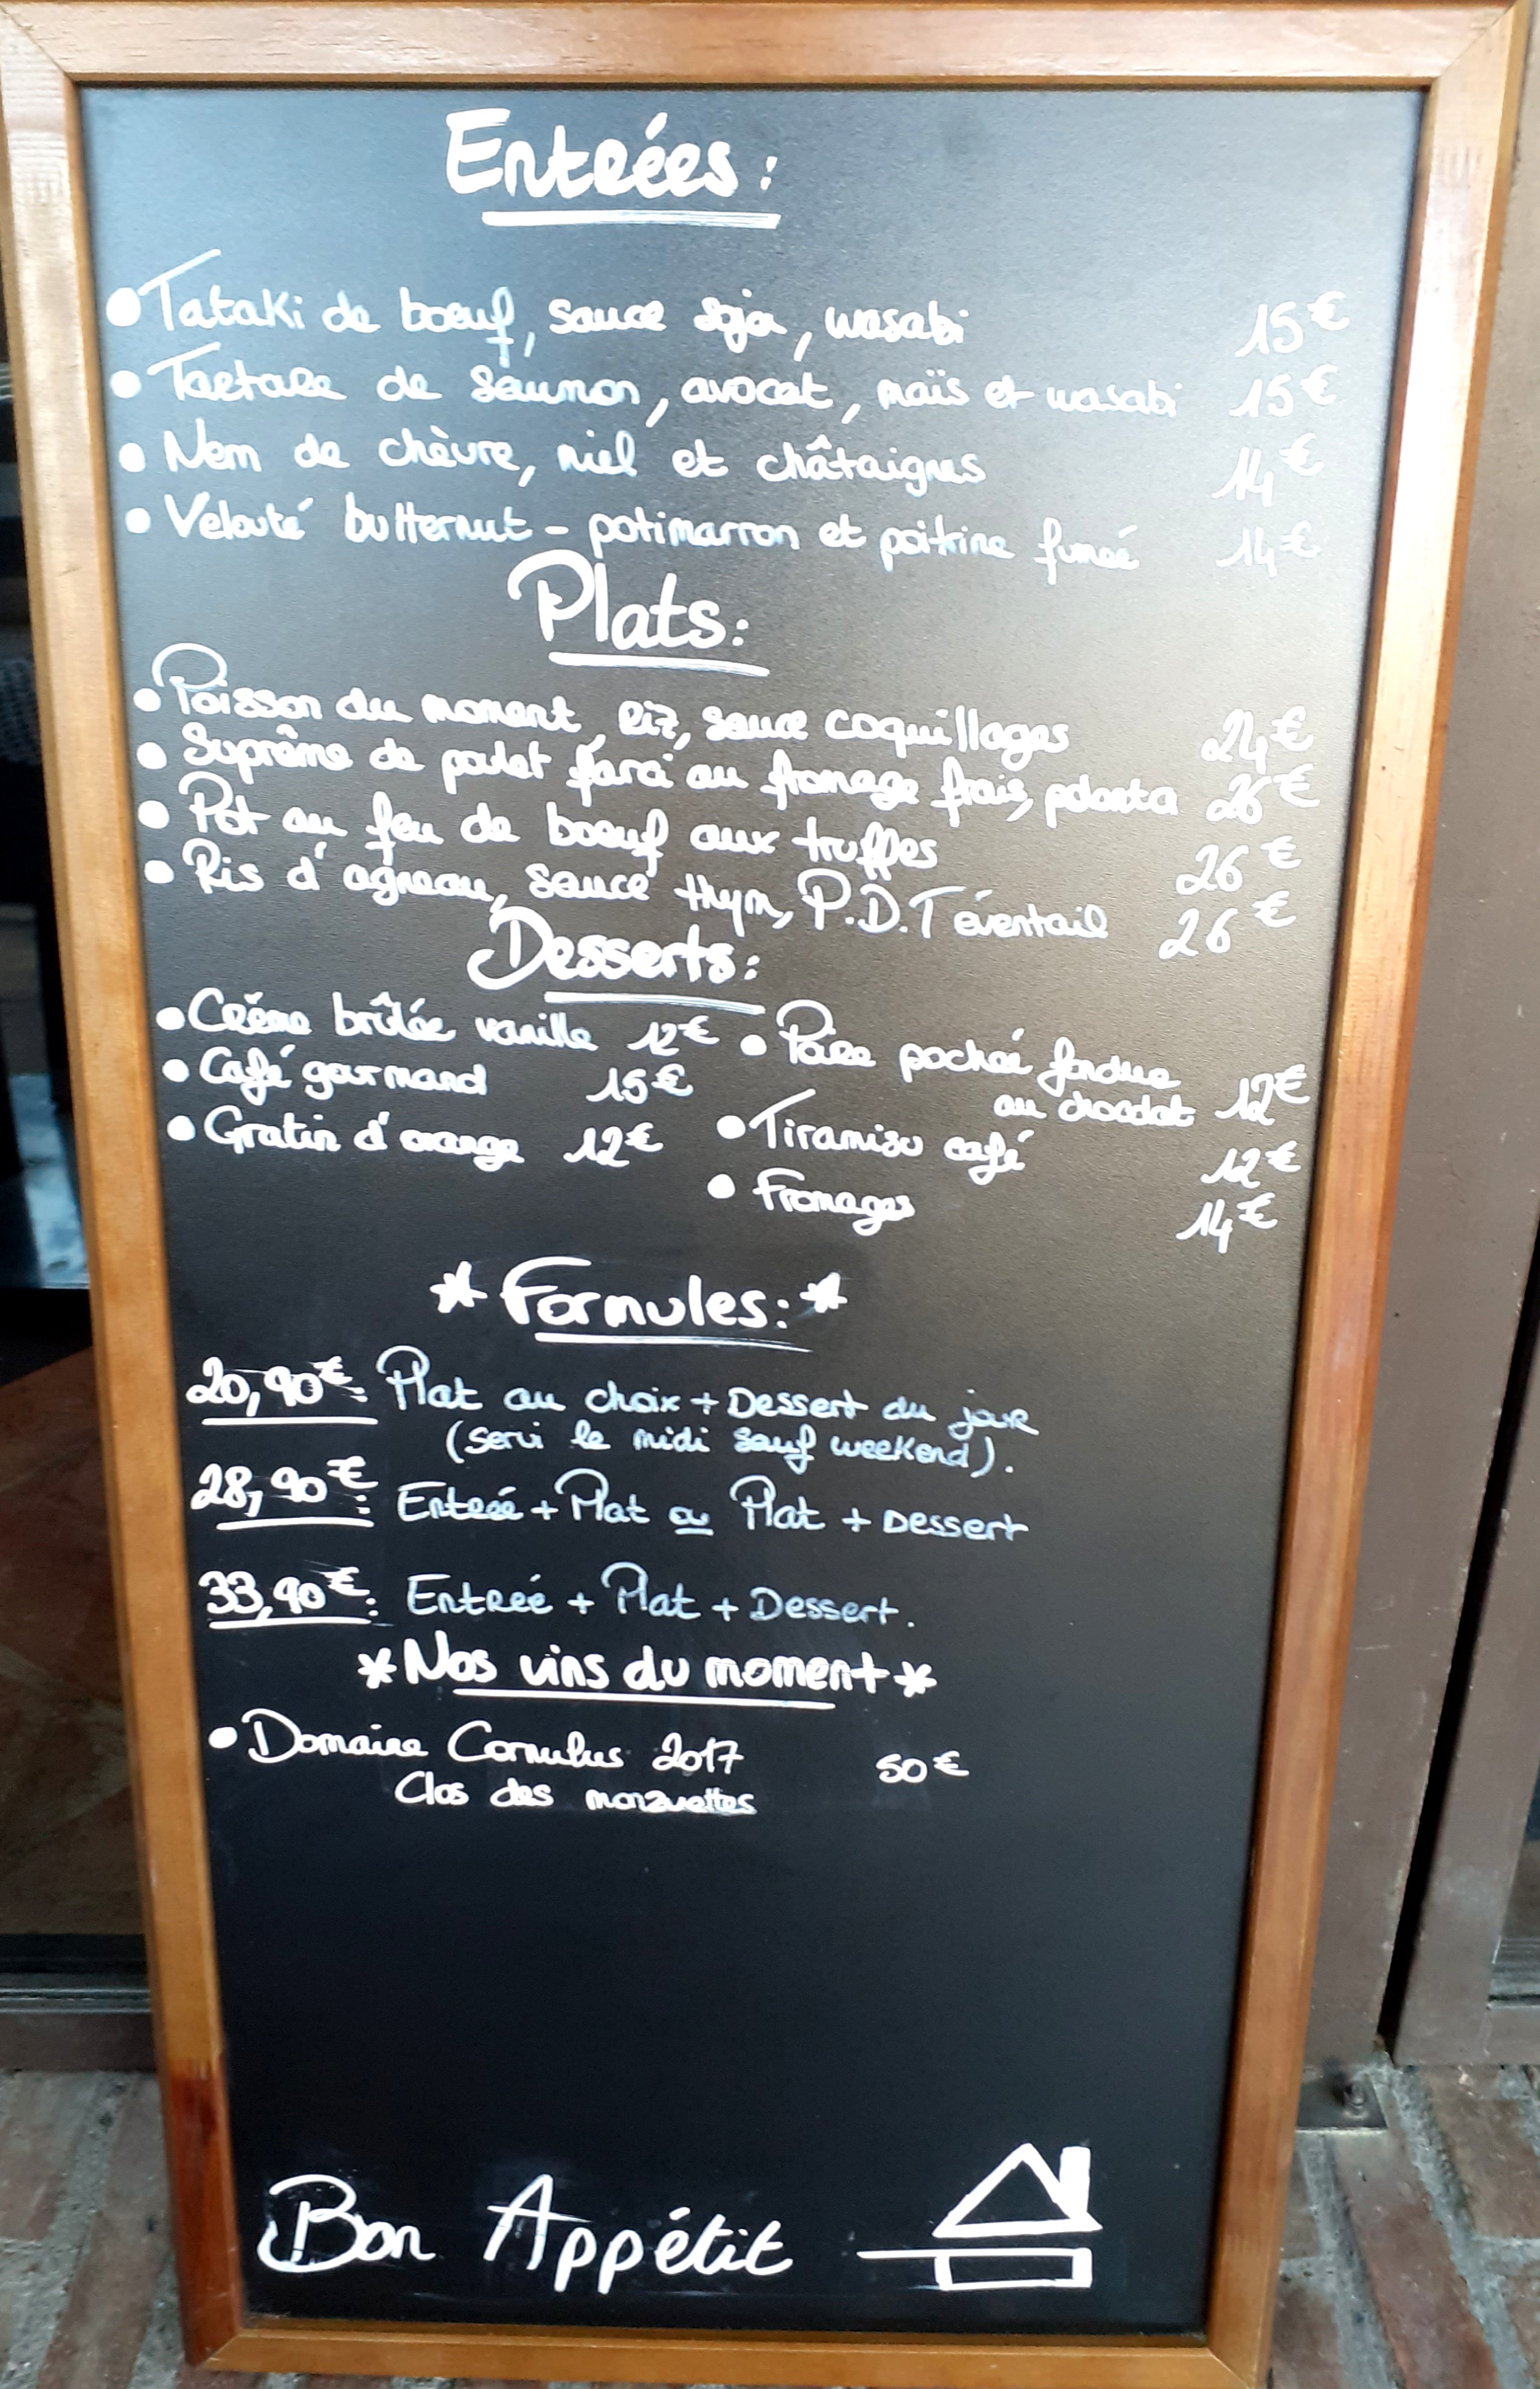 Entrées :
• Tataki de bœuf, sauce soja, wasabi 15€
• Tartare de saumon, avocat, maïs et wasabi 15€
• Nem de chèvre, miel et châtaignes 14€
• Velouté butternut - potimarron et poitrine fumée 14€
Plats :
• Poisson du moment, riz, sauce coquillages 24€
• Suprême de poulet farci au fromage frais, polenta 26€
• Pot au feu de bœuf aux truffes 26€
• Ris d'agneau, sauce thym, P.D.T éventail 26€
Desserts :
• Crème brûlée vanille 12€ • Poire pochée fondue
au chocolat 12€
• Café gourmand 15€
• Tiramisu café 12€
• Gratin d'orange 12€
• Fromages 14€
* Formules : *
20,90€ : Plat au choix + Dessert du jour
(servi le midi sauf weekend).
28,90€ : Entrée + Plat ou Plat + Dessert
33,90€ : Entrée + Plat + Dessert.
* Nos vins du moment *
• Domaine Cornulus 2017 50€
Clos des
Bon Appétit